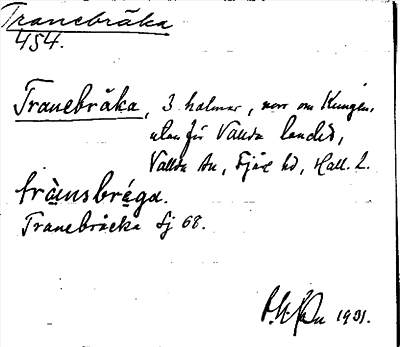 Tranebråka
454.
Tranebråka, 3 holmar, norr om Kungen,
utanför Vallda landed,
Vallda sn, Fjäre hd, Hall. l.
tràinsbréga.
Tranebråcka Sj 68.
1931.